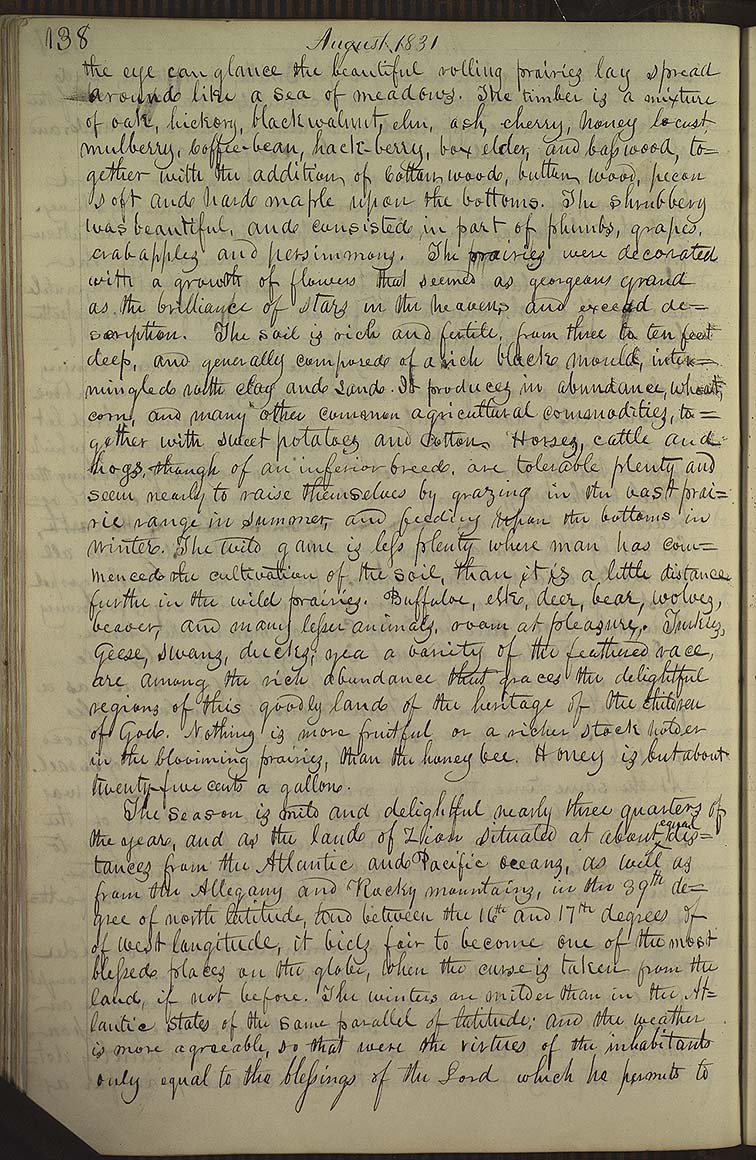 138
August 1831
the eye can glance the beautiful rolling prairies lay spread
around like a sea of meadows. The timber is a mixture
of oak, hickory, black walnut, elm, ash, cherry, honey locust,
mulberry, coffee-bean, hack-berry, box elder, and basswood, to=
gether with the addition of Cotton, wood, button, wood, pecon
soft and hard maple upon the bottoms. The shrubbery
was beautiful, and consisted in part of plumbs, grapes,
crabapples and persimmons. The prairies were decorated
with a growth of flowers that seemed as georgeous grand
as the brilliance of stars in the heavens, and exceed de=
scription. The soil is rich and fertile, from three to ten feet
deep, and generally composed of a rich black mould, inter=
mingled with clay and Sand. It produces in abundance, wheat,
corn, and many other common agricultural commodities, to=
gather with sweet potatoes and Cotton. Horses, cattle and
hogs, though of an inferior breed, are tolerable plenty and
seem nearly to raise themselves by grazing in the vast prai=
rie range in summer, and feeding upon the bottoms in
winter. The wild game is less plenty where man has com=
menced the cultivation of the soil, than it is a little distance
further in the wild prairies. Buffaloe, elk, deer, bear, wolves,
beaver, and many lesser animals, roam at pleasure. Turkies,
Geese, swans, ducks; yea a variety of the feathered race,
are among the rich abundance that graces the delightful
regions of this goodly land of the heritage of the children
of God. Nothing is more fruitful or a richer stock holder
in the blooming prairies, than the honey bee. Honey is but about
twenty five cents a gallon.
The season is mild and delightful nearly three quarters of
the year, and as the land of Zion situated at about equal dis=
tances from the Atlantic and Pacific oceans, as well as
from the Allegany and Rocky mountains, in the 39th de=
gree of north latitude, and between the 16th and 17th degrees of
of west longitude, it bids fair to become one of the most
blessed places on the globe, when the curse is taken from the
land, if not before. The winters are milder than in the At=
lantic states of the same parallel of latitude; and the weather
is more agreeable, so that were the virtues of the inhabitants
only equal to the blessings of the Lord which he permits to